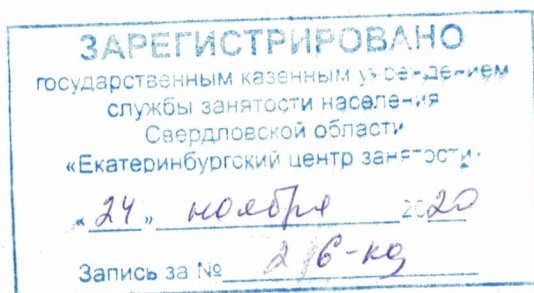 ЗАРЕГИСТРИРОВАНО
государственным казенным учреждением
службы занятости населения
Свердловской области
«Екатеринбургский центр занятости»
«24» ноября 2020
Запись за №